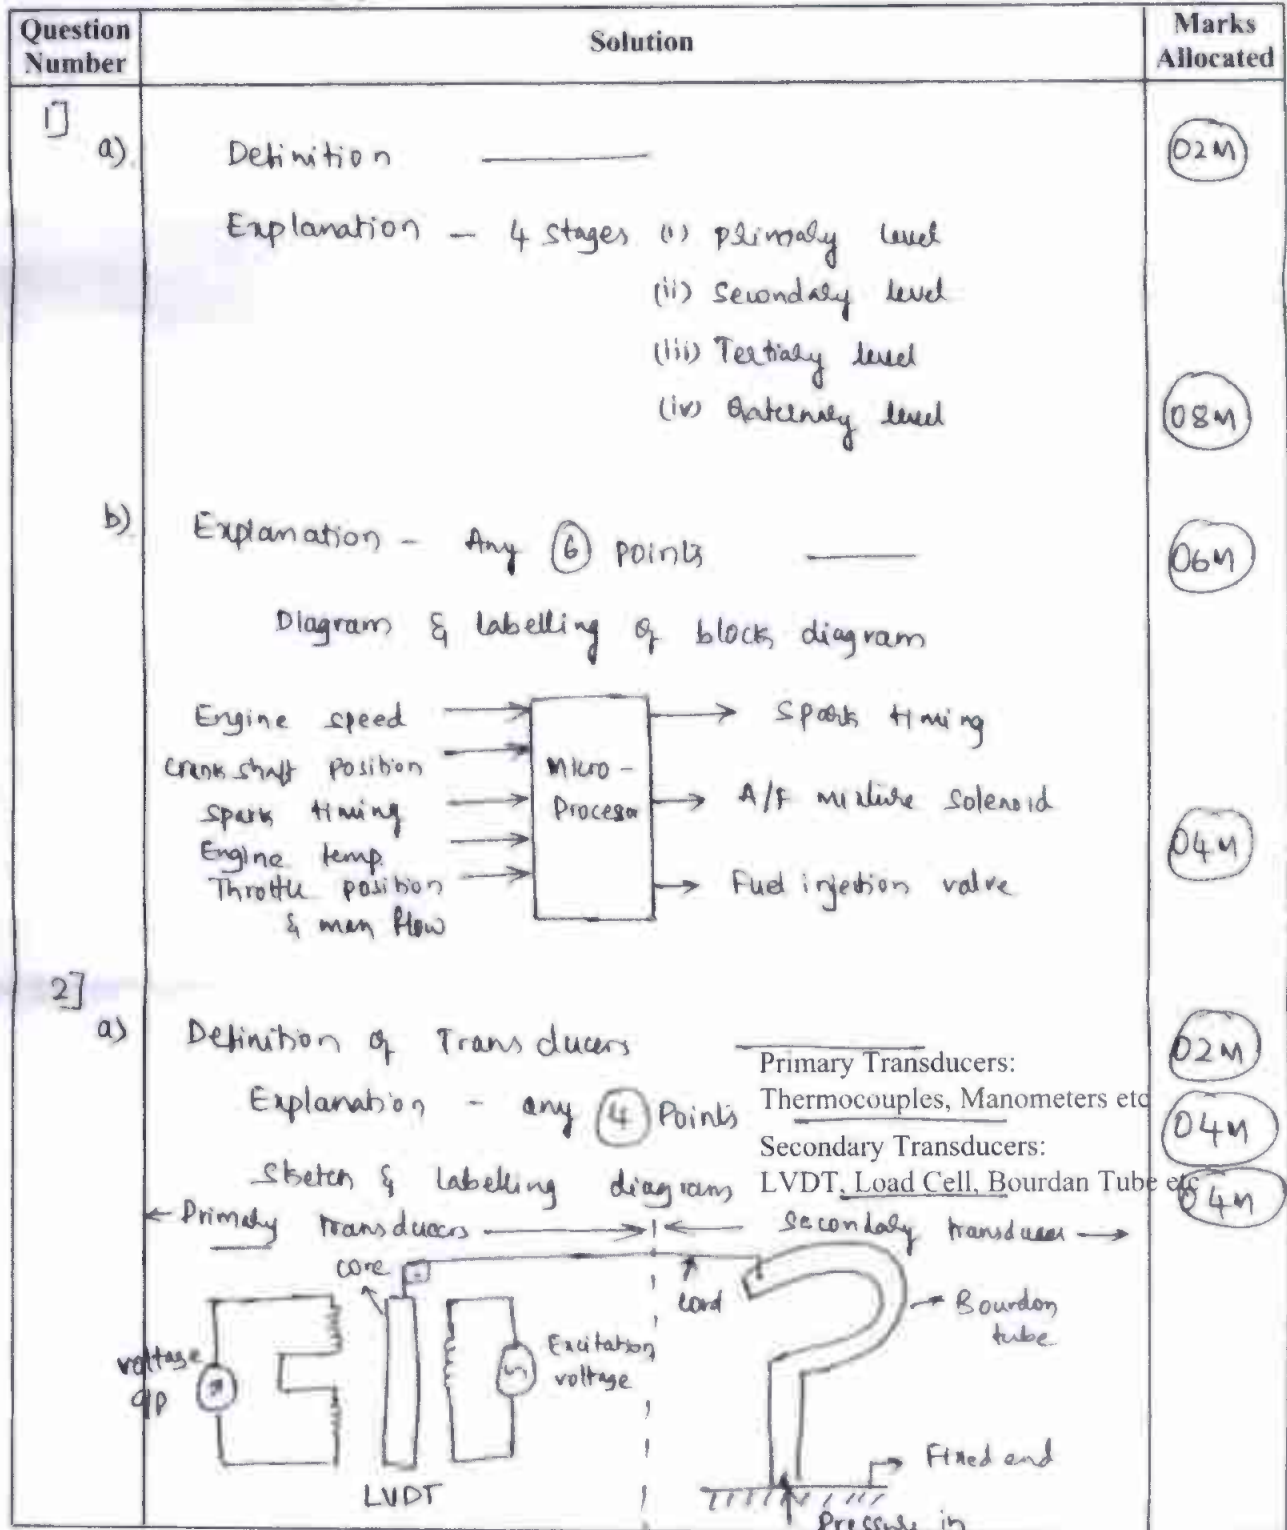 Question Number
Solution
Marks Allocated
1]
a)
Definition
02M
Explanation - 4 stages (i) Primary level
(ii) Secondary level
(iii) Tertiary level
(iv) Quaternary level
08M
b)
Explanation - Any 6 points
06M
Diagram & labelling of block diagram
Engine speed
Crank shaft position
Spark timing
Engine temp.
Throttle position
& man flow
Micro-
Procesor
Spark timing
A/F mixture solenoid
Fuel injection valve
04M
2]
a)
Definition of Transducers
02M
Primary Transducers:
Explanation - any 4 Points
Thermocouples, Manometers etc
04M
Secondary Transducers:
Sketch & labelling diagram
LVDT, Load Cell, Bourdan Tube etc
04M
Primary transducers
Secondary transducer
core
Bourdon
tube
voltage
o/p
Excitation
voltage
LVDT
Fixed end
Pressure in